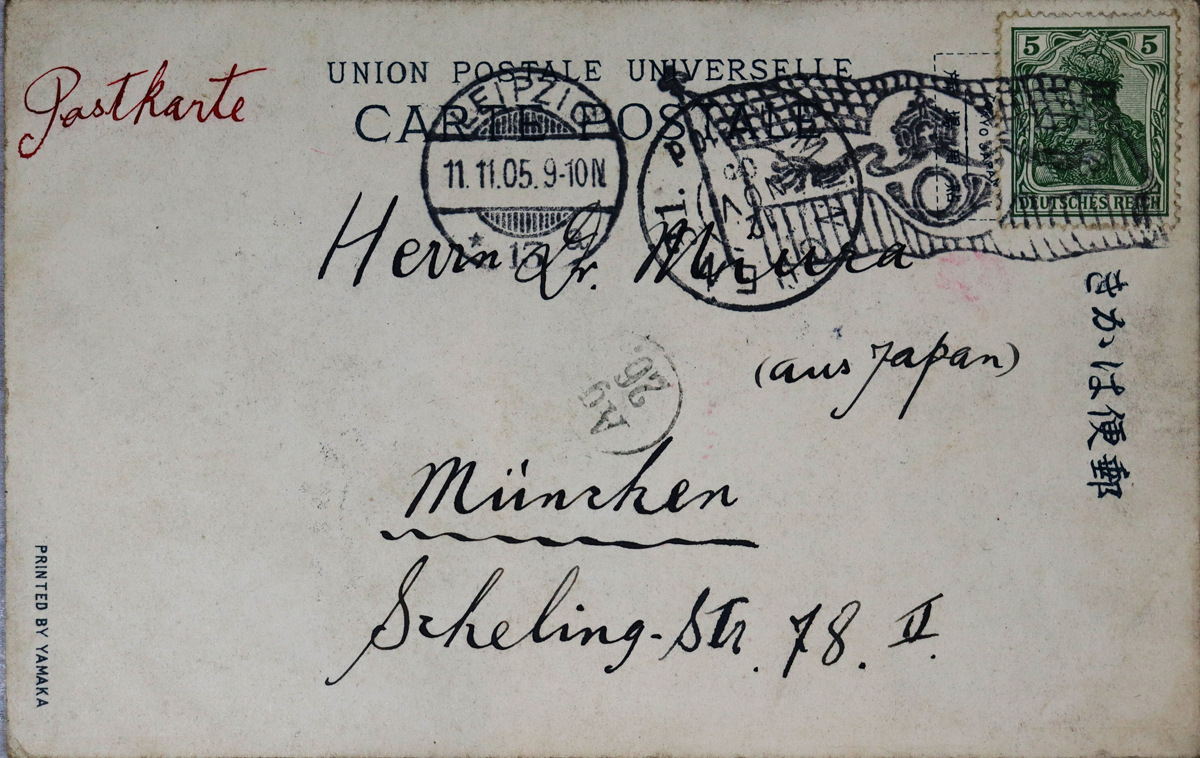 Postkarte
UNION POSTALE UNIVERSELLE
CARTE POSTALE
5 5
DEUTSCHES REICH
LEIPZIG
11.11.05.9-10N
* 13
Herrn Dr. Miura
(aus Japan)
Ag
26.
München
Scheling-Str. 78. II.
きかは便郵
PRINTED BY YAMAKA